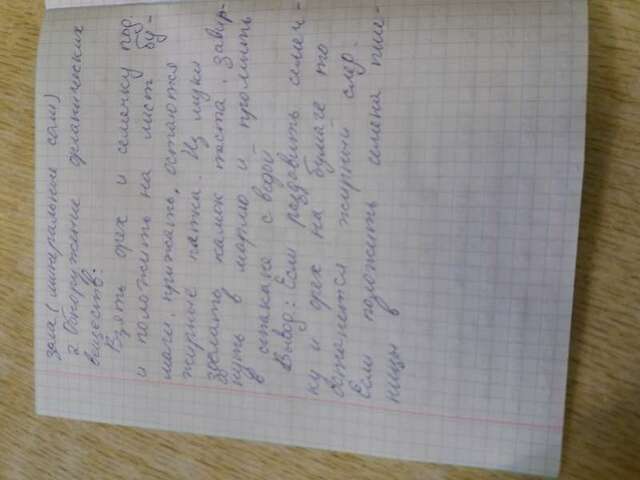 зола (минеральные соли)
2. Обнаружение органических
веществ:
Взять орех и семечку под
и положить на лист бу-
маги. прижать, остаются
жирные пятна. Из муки
сделать камок теста. Завер-
нуть в марлю и промыть
в стакане с водой
Вывод: Если раздавить семеч-
ку и орех на бумаге то
останется жирный след.
Если положить семена пше-
ницы в